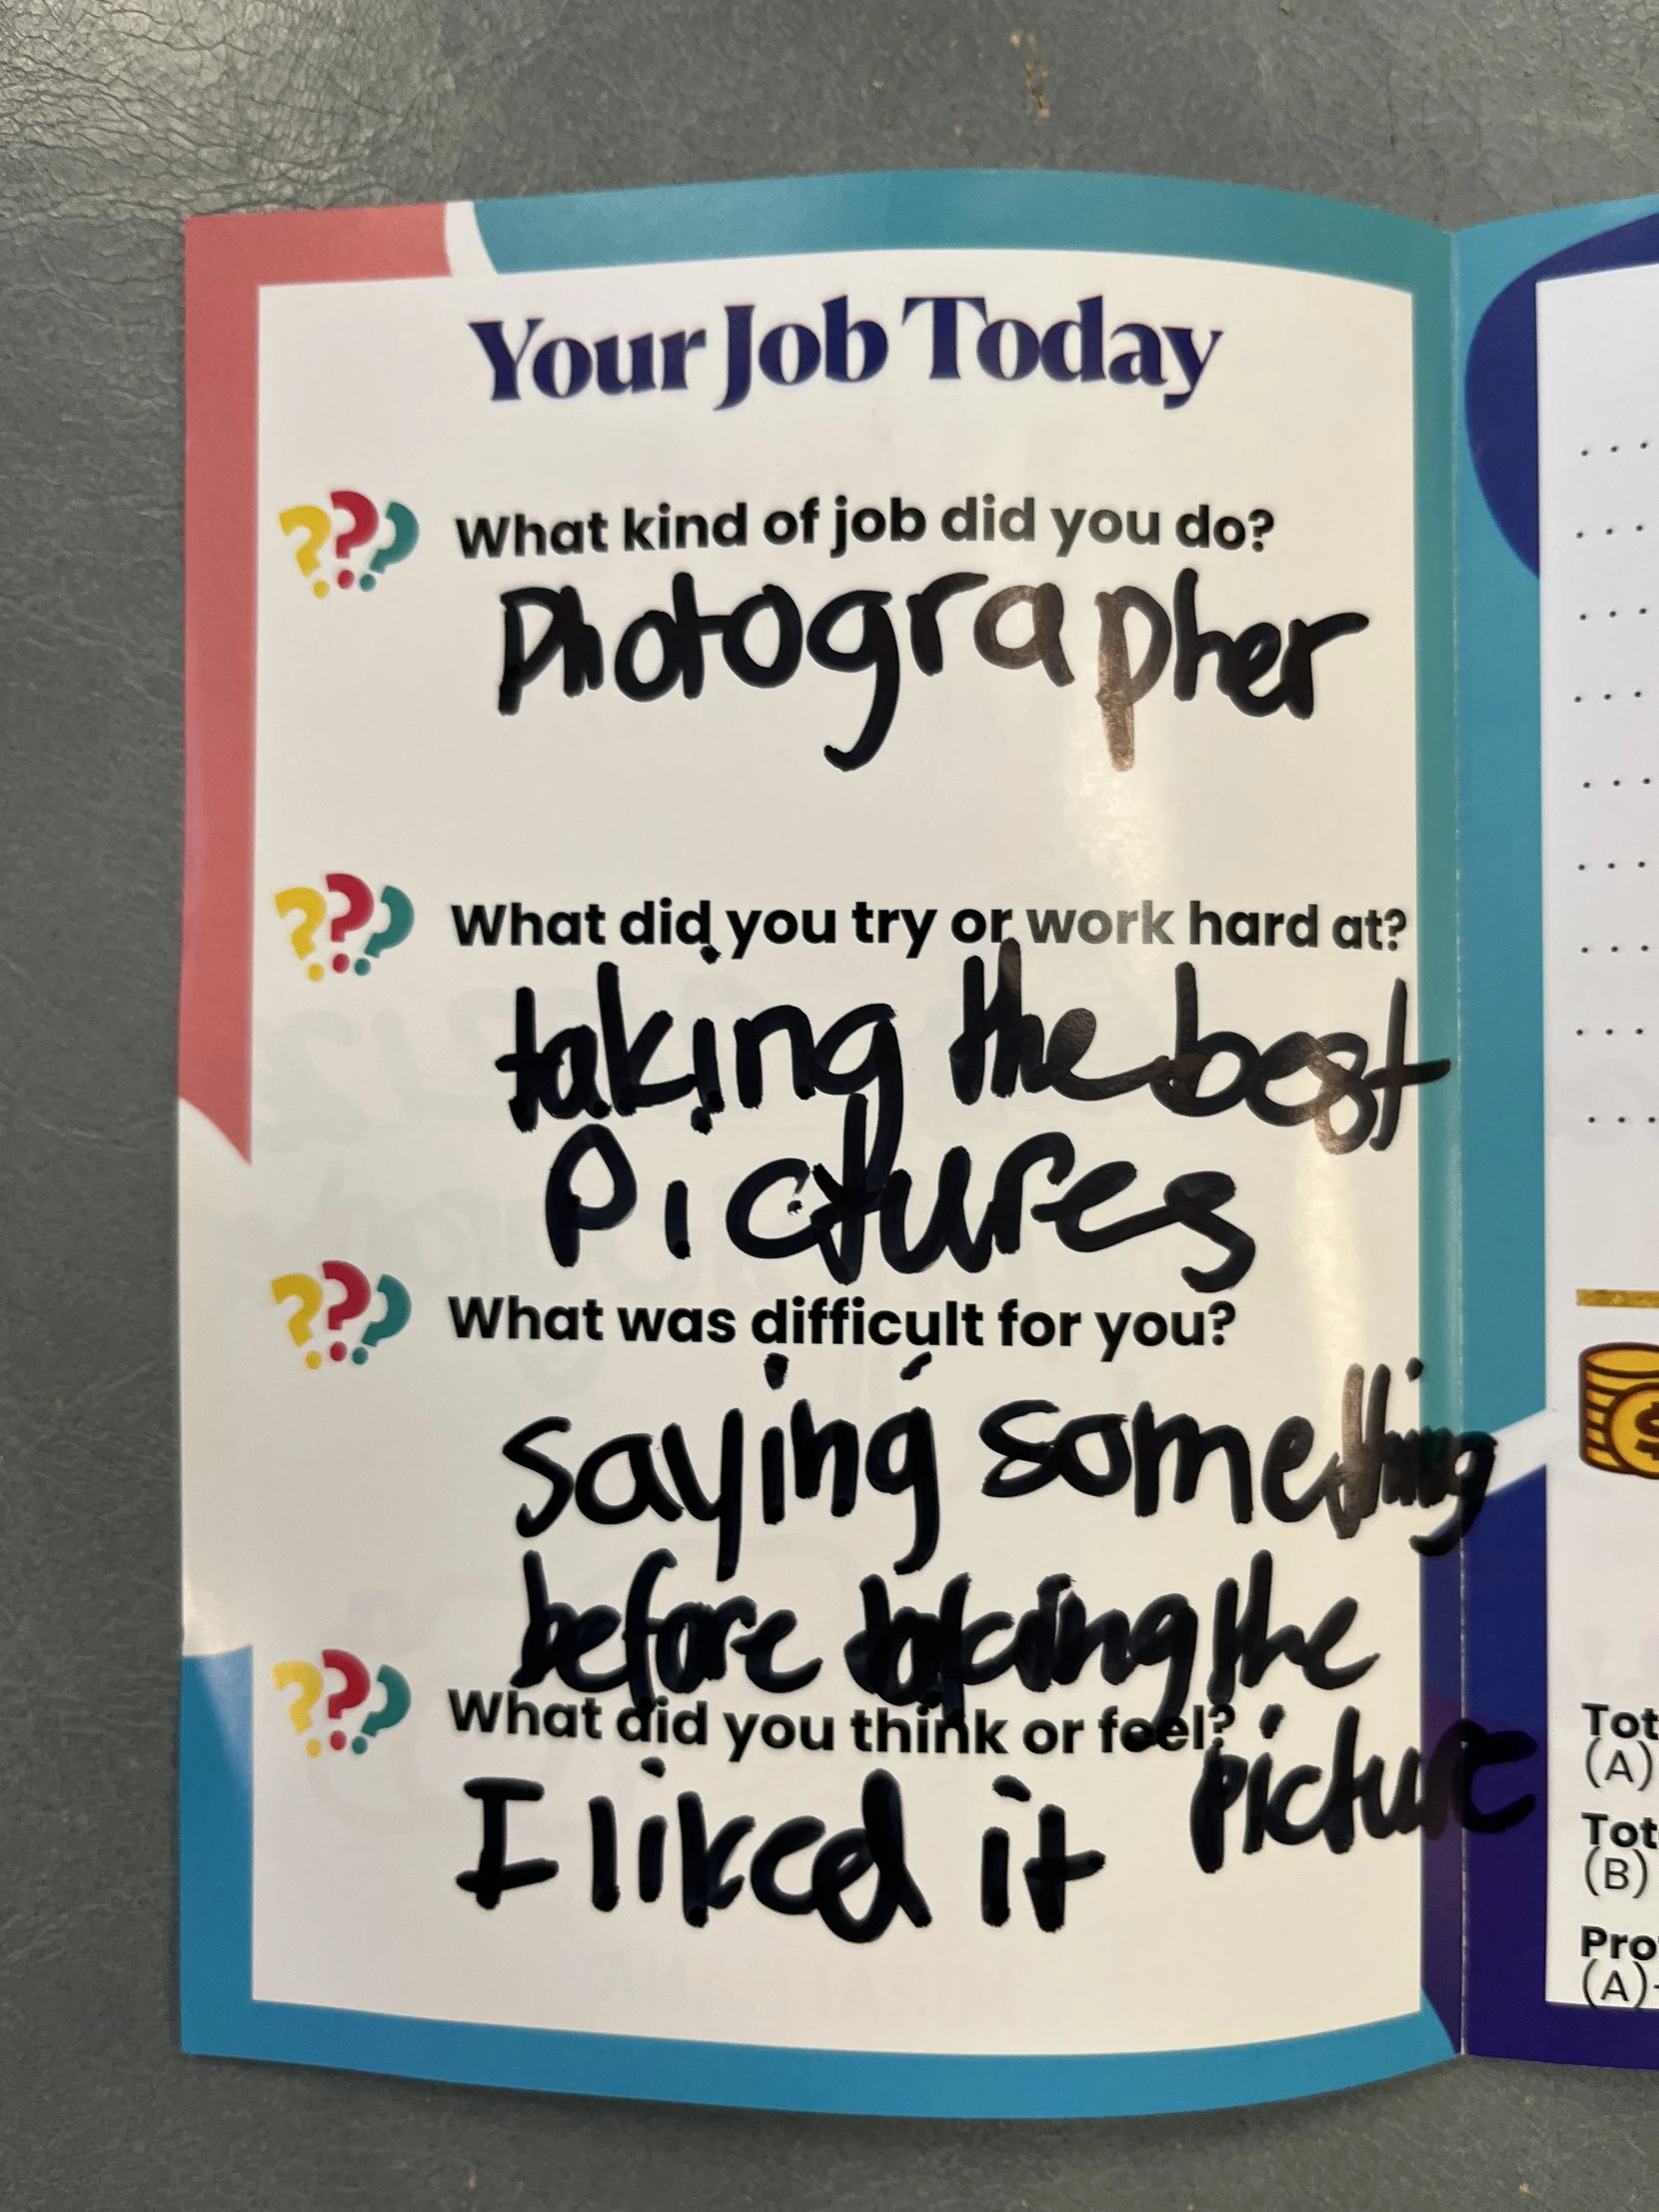 Your Job Today
What kind of job did you do?
Photographer
What did you try or work hard at?
taking the best
Pictures
What was difficult for you?
saying something
before taking the
picture
What did you think or feel?
I liked it
Tot
(A)
Tot
(B)
Pro
(A)-